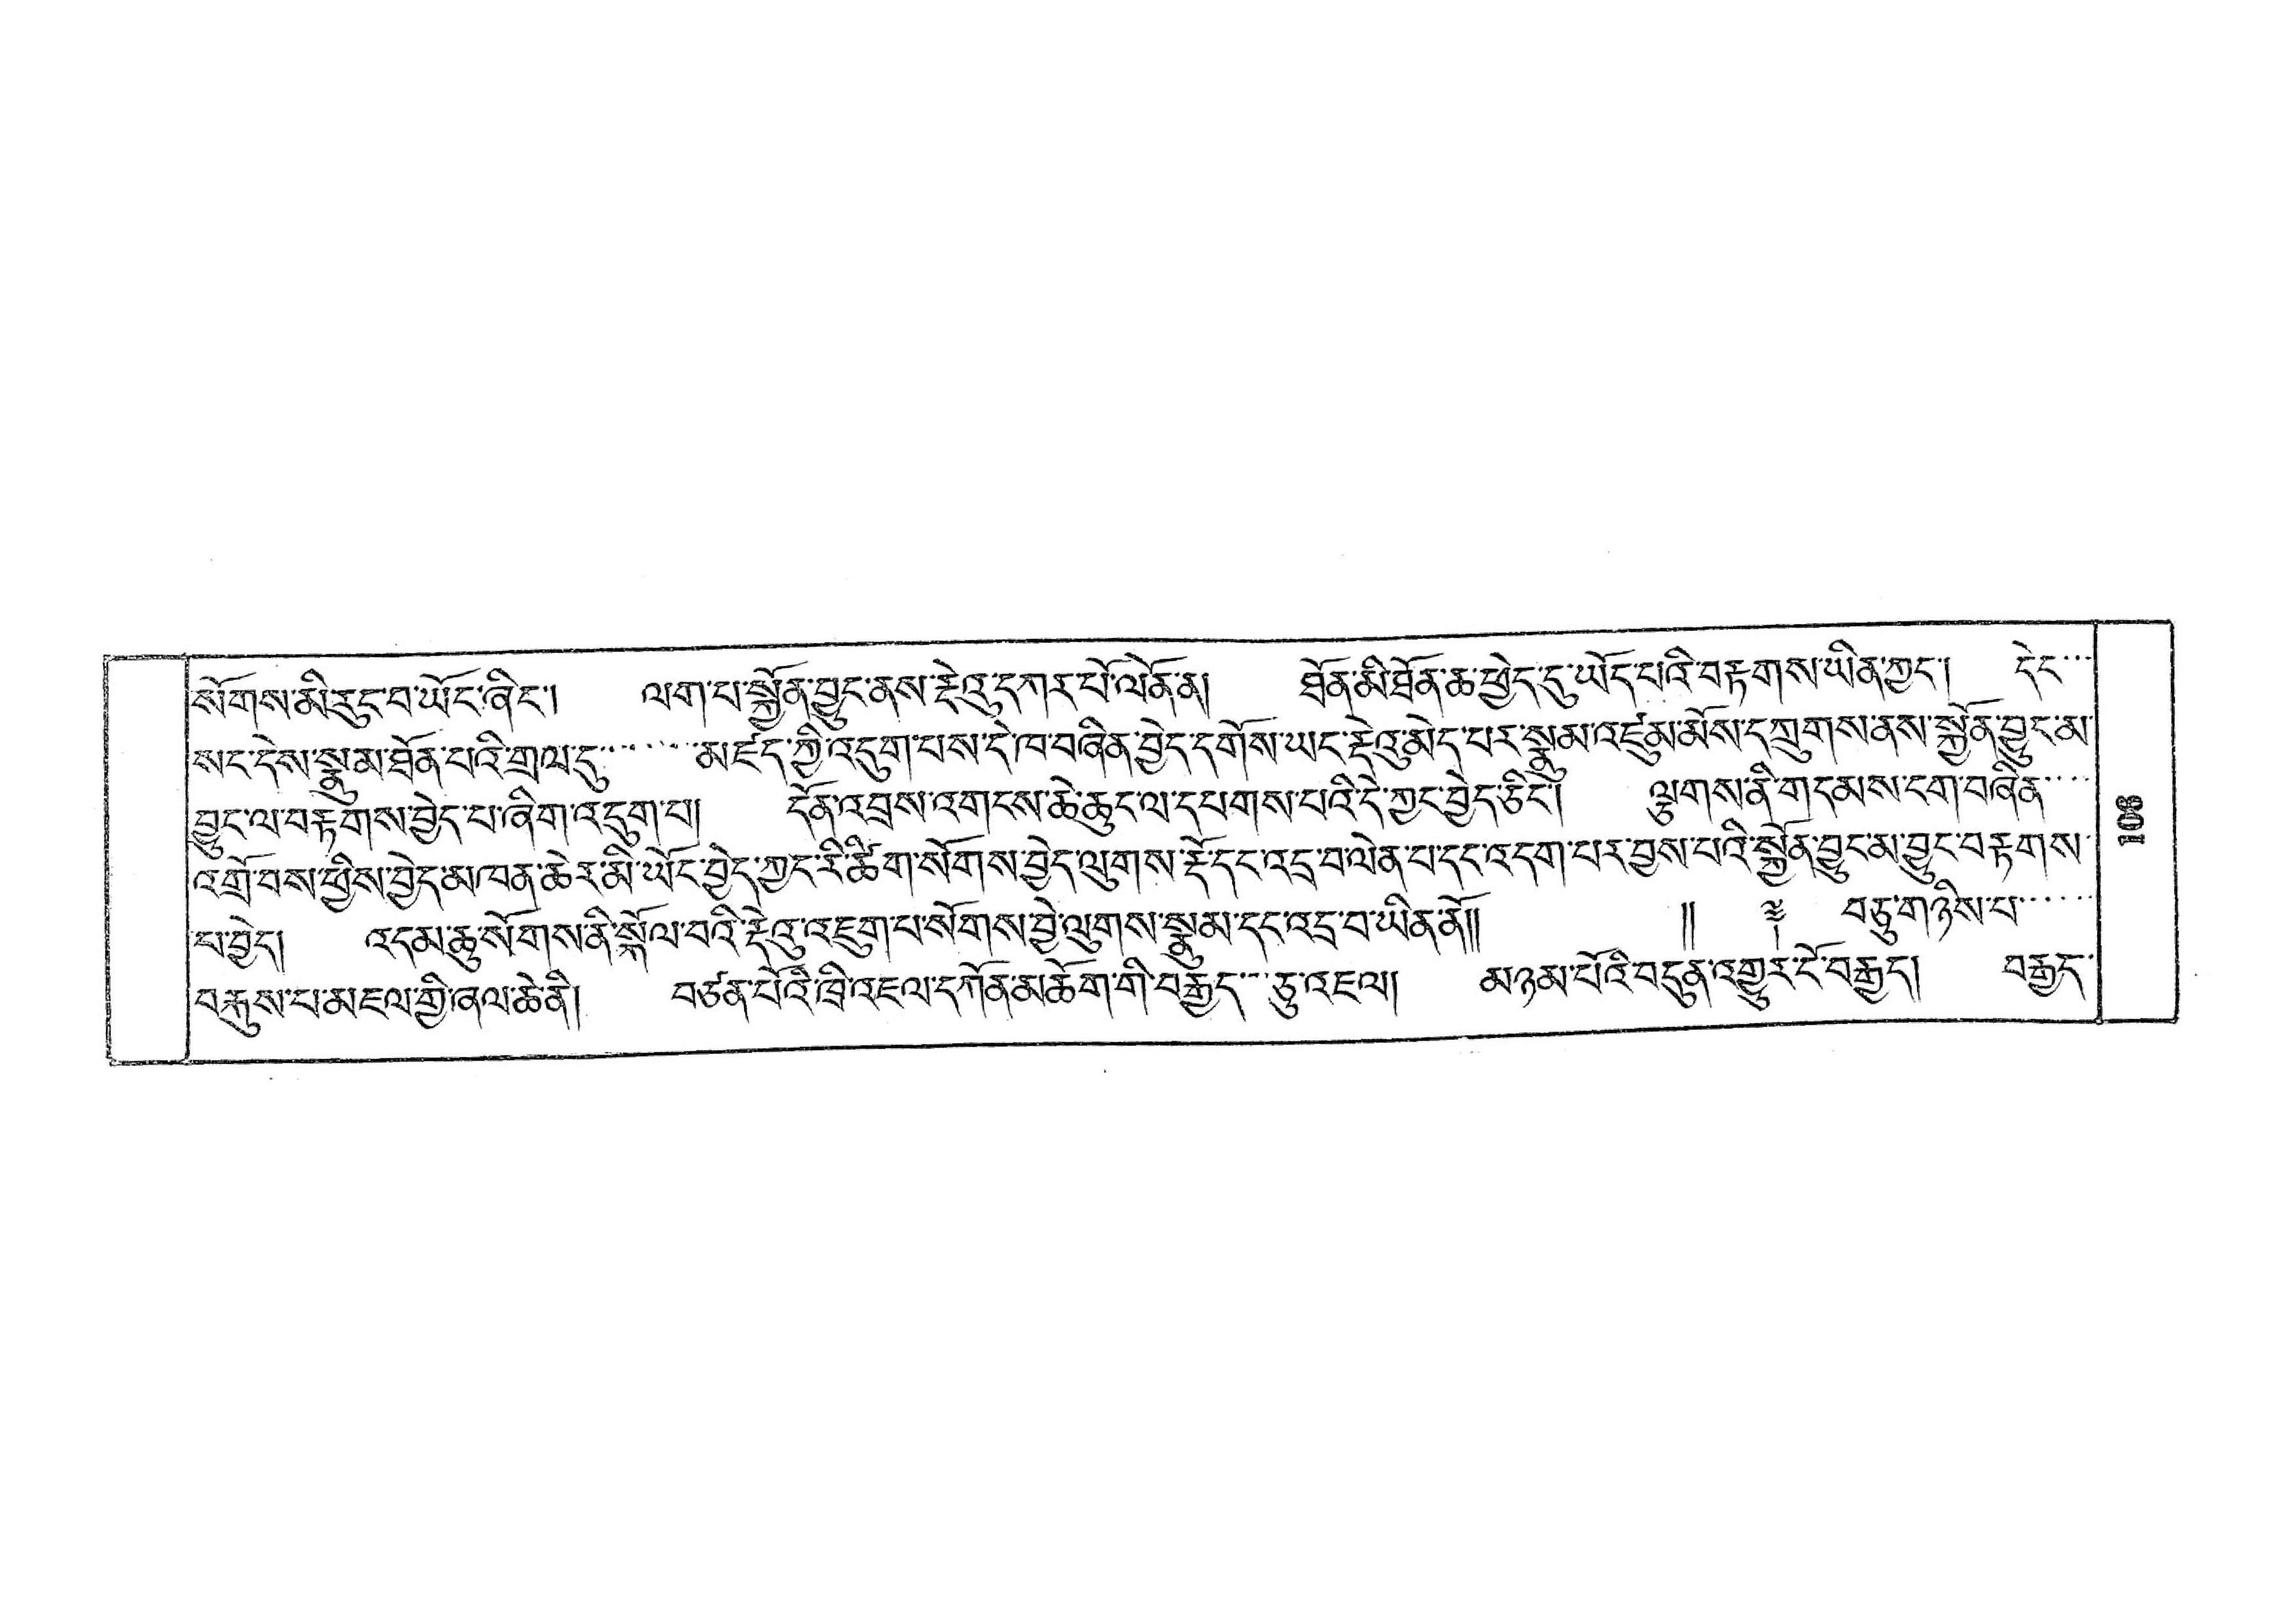 སོགས་མི་རུང་བ་ཡོང་ཞིང་། ལག་པ་སྐྱོན་བྱུང་ནས་རྡེའུ་དཀར་པོ་ལེནོན། ཐོན་མི་ཐོན་ཆ་ཕྱེད་དུ་ཡོད་པའི་བརྟགས་ཡིན་ཀྱང་། དེང་
སང་དེས་སྣུམ་ཐོན་པའི་གྲལ་དུ་་་་་་་མཛད་ཀྱི་འདུག་པས་དེ་ཁ་བཞིན་བྱེད་དགོས་ཡང་རྡེའུ་མེད་པར་སྣུམ་འཛུམ་མོས་དཀྲུགས་ནས་སྐྱོན་བྱུང་མ་
བྱུང་ལ་བརྟགས་བྱེད་པ་ཞིག་འདུག་པ། དོན་འབྲས་འགངས་ཆེ་ཆུང་ལ་དཔགས་པའི་དེ་ཀྱང་བྱེད་ཅིང་། ལྕགས་ནི་གདམས་ངག་བཞིན་་་་
འགྲོ་བས་ཕྱིས་བྱེད་མཁན་ཆེར་མི་ཡོང་བྱེད་ཀྱང་རི་ཚིག་སོགས་བྱེད་ལུགས་རྡོ་དང་འདྲ་བ་ལེན་པ་དང་འདག་པར་བྱས་པའི་སྐྱོན་བྱུང་མ་བྱུང་བརྟགས་
པ་བྱེད། འདམ་ཆུ་སོགས་ནི་སྐོལ་བའི་རྡེའུ་འཇུག་པ་སོགས་བྱེ་ལུགས་སྣུམ་དང་འདྲ་བ་ཡིན་ནོ།། །། ༈ བཅུ་གཉིས་པ་་་་་་
བརྐུས་པ་མཇལ་གྱི་ཞལ་ཆེ་ནི། བཙན་པོའི་ཁྲི་འཇལ་དཀོན་མཆོག་གི་བརྒྱད་་་ཅུ་འཇལ། མཉམ་པོའི་བདུན་འགྱུར་ངོ་བརྒྱད། བརྒྱད་
108